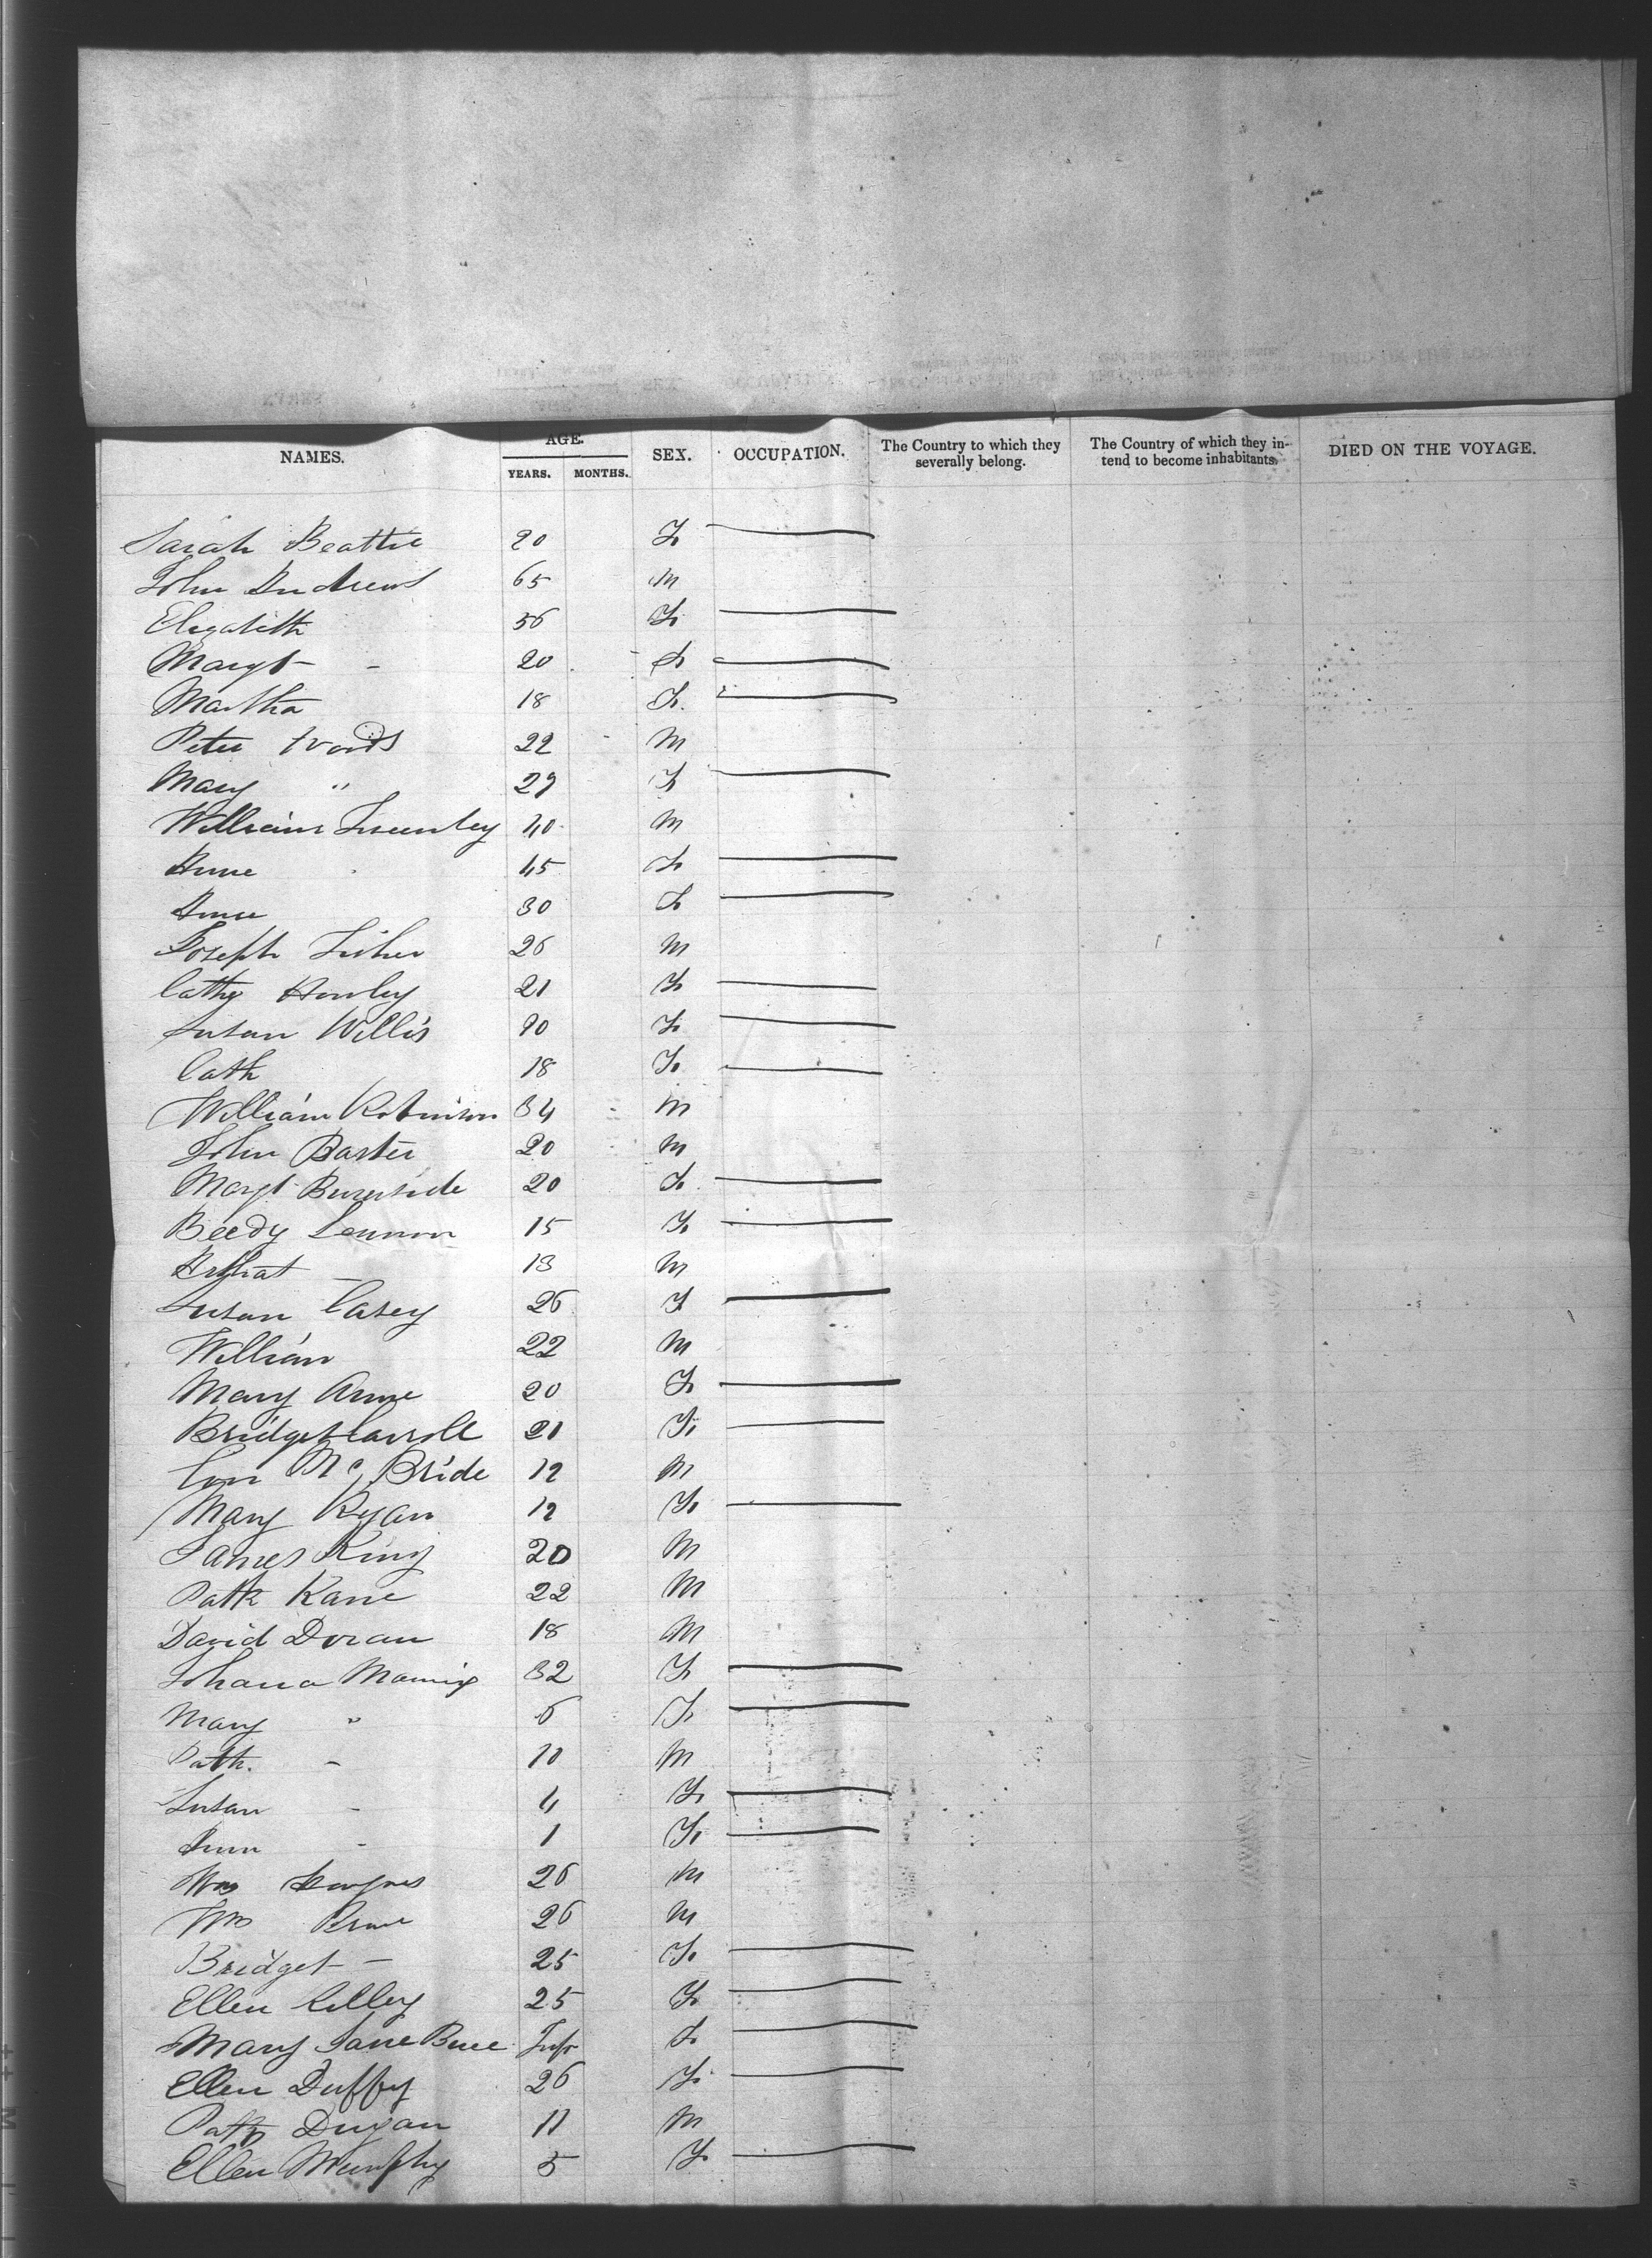 NAMES. AGE. YEARS. MONTHS. SEX. OCCUPATION. The Country to which they severally belong. The Country of which they in-tend to become inhabitants. DIED ON THE VOYAGE.
Sarah Beattie 20 F
John Andrews 65 M
Elizabeth 56 F
Margt - 20 F
Martha 18 F
Peter Woods 22 M
Mary " 27 F
William 40 M
Anne 45 F
Anne 30 F
Joseph Fisher 26 M
Cathy Hawley 21 F
Susan Willis 20 F
Cath 18 F
William Robinson 34 M
John Baxter 20 M
Margt Burnside 20 F
Beedy Lennon 15 F
13 M
Susan Casey 26 F
William 22 M
Mary Anne 20 F
Bridget Carroll 21 F
Con McBride 12 M
Mary Ryan 12 F
James King 20 M
Patk Kane 22 M
David Doran 18 M
Johana 32 F
Mary " 6 F
Patk. - 10 M
Susan - 4 F
Ann - 1 F
Wm 26 M
Wm 26 M
Bridget - 25 F
Ellen Cilley 25 F
Mary Jane Infr F
Ellen Duffy 26 F
Patk Dugan 11 M
Ellen Murphy 5 F